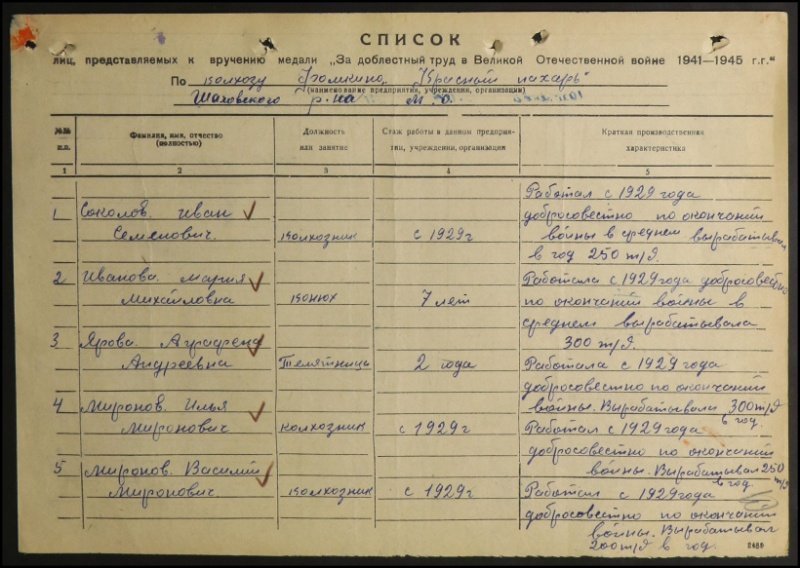 СПИСОК
лиц, представляемых к вручению медали „За доблестный труд в Великой Отечественной войне 1941—1945 г.г.“
По колхозу Фомкино „Красный пахарь“
(наименование предприятия, учреждения, организации)
Шаховского р-на М.О.
№№ п.п.
Фамилия, имя, отчество (полностью)
Должность или занятие
Стаж работы в данном предприятии, учреждении, организации
Краткая производственная характеристика
1 2 3 4 5
1 Соколов Иван Семенович. колхозник с 1929г
Работал с 1929 года
добросовестно по окончаний
войны в среднем вырабатывал
в год 250 т/д.
2 Иванова Мария Михайловна конюх 7 лет
Работала с 1929 года добросовестно
по окончаний войны в
среднем вырабатывала
300 т/д.
3 Ярова Аграфена Андреевна Телятница 2 года
Работала с 1929 года
добросовестно по окончаний
войны. Вырабатывала 300 т/д
в год.
4 Миронов Илья Миронович колхозник с 1929г
Работал с 1929 года
добросовестно по окончаний
войны. Вырабатывал 250 т/д
в год.
5 Миронов Василий Миронович. колхозник с 1929г
Работал с 1929 года
добросовестно по окончаний
войны. Вырабатывал
200 т/д в год.